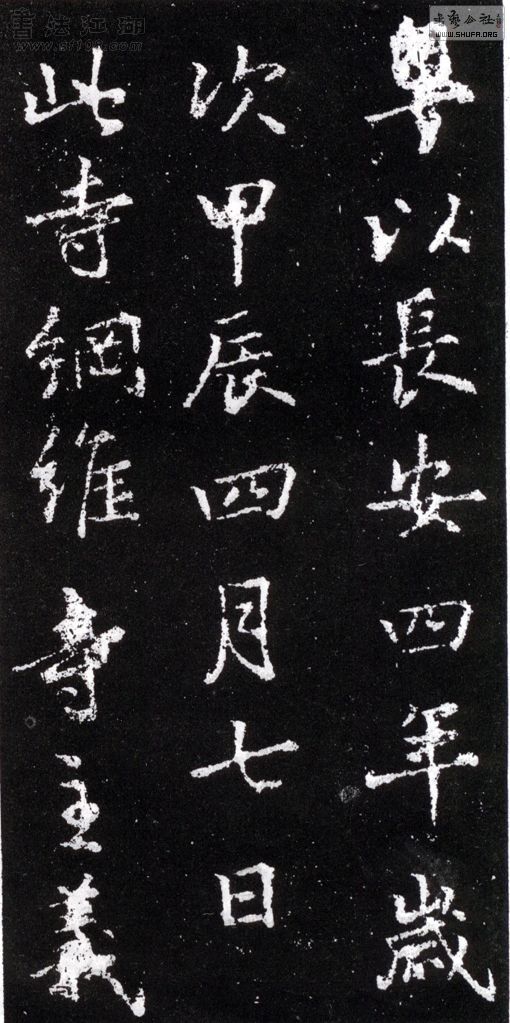 粤以長安四年歲
次甲辰四月七日
此寺綱維寺主義
書法江湖
書藝公社
WWW.SHUFA.ORG